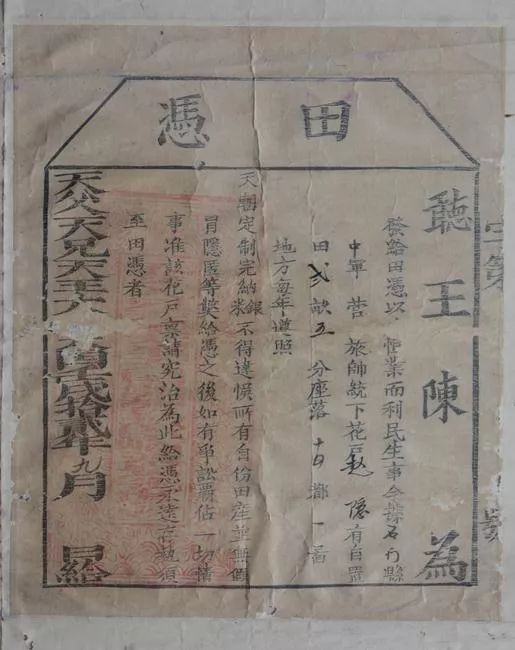 田憑
字第 號
聽王陳為
發給田憑以 恒業而利民生事今據石门縣
中軍 营 旅帥統下花户趙 隱有自置
田弍畝五分座落十四都一啚
地方每年遵照
天朝定制完納銀米不得違悮所有自份田產並無假
冒隱匿等獘給憑之後如有爭訟霸佔一切情
事准該花户禀請究治為此給憑永遠存執須
至田憑者
天父天兄天王太 年九月 日給